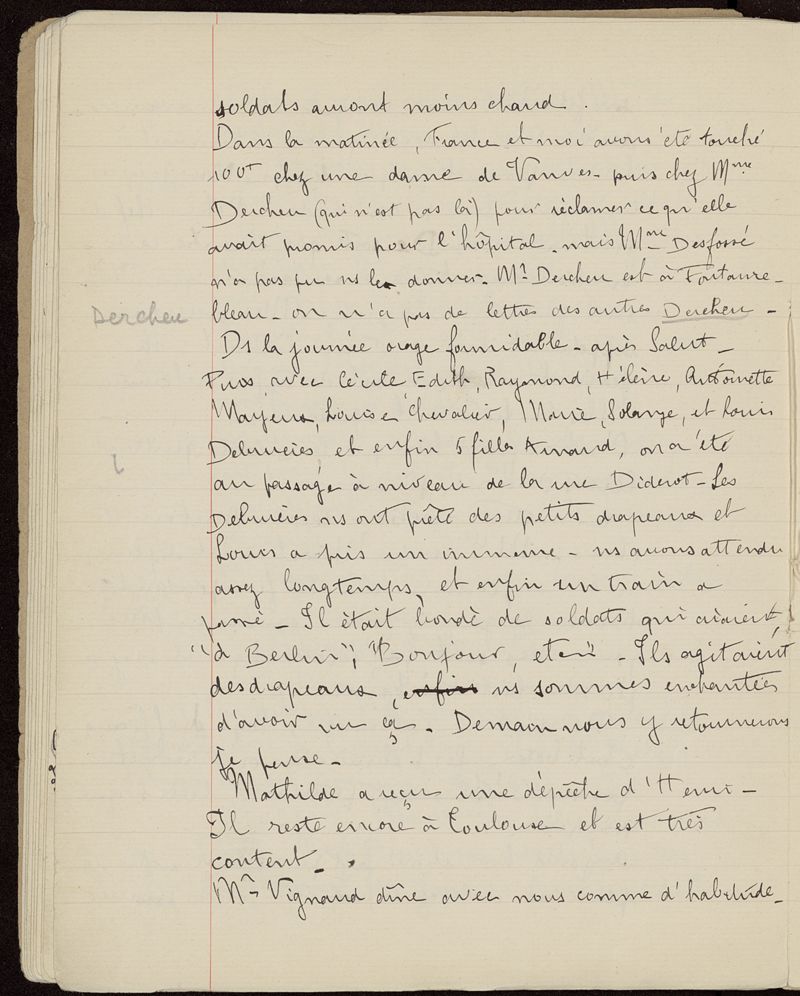 soldats auront moins chaud.
Dans la matinée, France et moi avons été touché
100f chez une dame de Vanves - puis chez Mme
Dercheu (qui n'est pas là) pour réclamer ce qu'elle
avait promis pour l'hôpital. mais Mme Desfossé
n'a pas pu ns le donner. Mr Dercheu est à Fontaine-
bleau - on n'a pas de lettres des autres Dercheu -
Dercheu
Ds la journée orage formidable - après Salut -
Puis avec Cécile Edith, Raymond, Hélène, Antoinette
Mayeux, Louise Chevalier, Marie, Solange, et Louis
et enfin 5 filles Arnaud, on a été
au passage à niveau de la rue Diderot - Les
ns ont prêté des petits drapeaux et
Louis a pris un immense - ns avons attendu
assez longtemps, et enfin un train a
passé - Il était bondé de soldats qui criaient
"à Berlin", "Bonjour, etc" - Ils agitaient
des drapeaux, enfin ns sommes enchantées
d'avoir vu ça. Demain nous y retournerons
je pense -
Mathilde a reçu une dépêche d'Henri -
Il reste encore à Toulouse et est très
content -
Mr Vignaud dîne avec nous comme d'habitude -